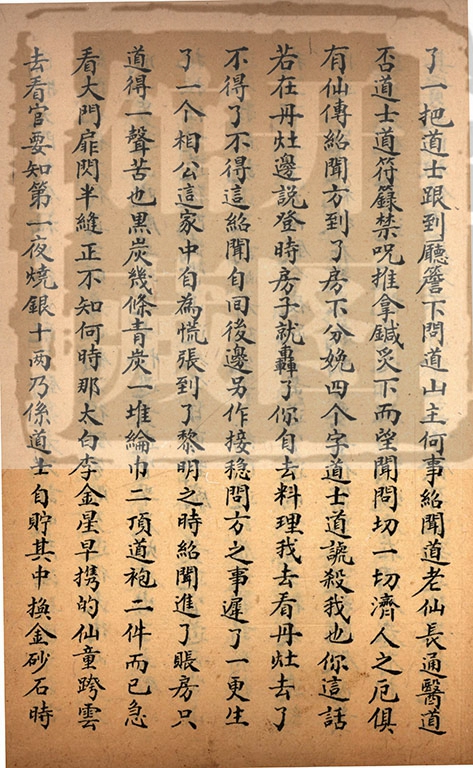 了一把道士跟到廳簷下問道山主何事紹聞道老仙長通醫道
否道士道符籙禁呪推拿鍼炙下而望聞問切一切濟人之厄俱
有仙傳紹聞方到了房下分娩四个字道士道諕殺我也你這話
若在丹灶邊說登時房子就轟了你自去料理我去看丹灶去了
不得了不得這紹聞自回後邊另作接穩問方之事遲了一更生
了一个相公這家中自為慌張到了黎明之時紹聞進了賬房只
道得一聲苦也黒炭幾條青炭一堆綸巾二頂道袍二件而已急
看大門扉閃半縫正不知何時那太白李金星早携的仙童跨雲
去看官要知第一夜燒銀十两乃係道士自貯其中換金砂石時